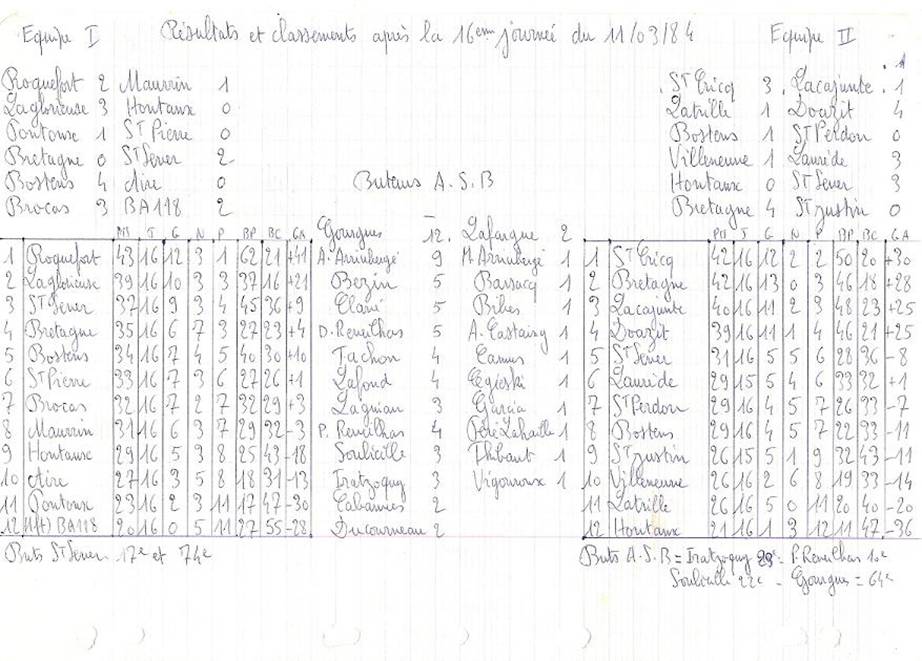 Equipe I Résultats et classements après la 16eme journée du 11/03/84 Equipe II
Roquefort 2 Maurrin 1
Laglorieuse 3 Hontanx 0
Pontonx 1 ST Pierre 0
Bretagne 0 ST Sever 2
Bostens 4 Aire 0
Brocas 3 BA118 2
ST Cricq 3 Lacajunte 1
Latrille 1 Doazit 4
Bostens 1 ST Perdon 0
Villeneuve 1 Laurède 3
Hontanx 0 ST Sever 3
Bretagne 4 ST Justin 0
Buteurs A.S.B
Pts J G N P BP BC GA
1 Roquefort 43 16 12 3 1 62 21 +41
2 Laglorieuse 39 16 10 3 3 37 16 +21
3 ST Sever 37 16 9 3 4 45 36 +9
4 Bretagne 35 16 6 7 3 27 23 +4
5 Bostens 34 16 7 4 5 40 30 +10
6 ST Pierre 33 16 7 3 6 27 26 +1
7 Brocas 32 16 7 2 7 32 29 +3
8 Maurrin 31 16 6 3 7 29 32 -3
9 Hontanx 29 16 5 3 8 25 43 -18
10 Aire 27 16 3 5 8 18 31 -13
11 Pontonx 23 16 2 3 11 17 47 -30
12 (1ft) BA118 20 16 0 5 11 27 55 -28
Buts ST Sever 17e et 74e
Gourgues 12
A. Arnulergé 9
Bezin 5
Claré 5
D. Reveilhas 5
Tachon 4
Lafond 4
Lagnian 3
P. Reveilhas 4
Souliville 3
Iratzoquy 3
Cabannes 2
Ducourneau 2
Lafargue 2
M. Arnulergé 1
Bassacq 1
Bibes 1
A. Castaing 1
Camus 1
Cegieski 1
Garcia 1
Pelé Lahaille 1
Thibaut 1
Vignoroux 1
Pts J G N P BP BC GA
1 ST Cricq 42 16 12 2 2 50 20 +30
2 Bretagne 42 16 13 0 3 46 18 +28
3 Lacajunte 40 16 11 2 3 48 23 +25
4 Doazit 39 16 11 1 4 46 21 +25
5 ST Sever 31 16 5 5 6 28 36 -8
6 Laurède 29 15 5 4 6 33 32 +1
7 ST Perdon 29 16 4 5 7 26 33 -7
8 Bostens 29 16 4 5 7 22 33 -11
9 ST Justin 26 15 5 1 9 32 43 -11
10 Villeneuve 26 16 2 6 8 19 33 -14
11 Latrille 26 16 5 0 11 20 40 -20
12 Hontanx 21 16 1 3 12 11 47 -36
Buts A.S.B = Iratzoquy - P. Reveilhas 10e
Souliville 22e - Gourgues = 64e